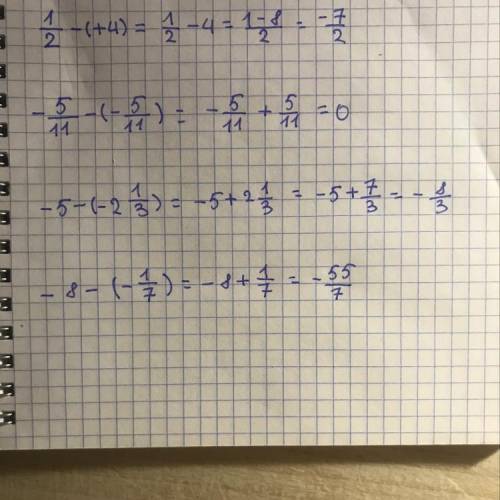 1/2 - (+4) = 1/2 - 4 = 1-8/2 = -7/2
-5/11 - (-5/11) = -5/11 + 5/11 = 0
-5 - (-2 1/3) = -5 + 2 1/3 = -5 + 7/3 = -8/3
-8 - (-1/7) = -8 + 1/7 = -55/7